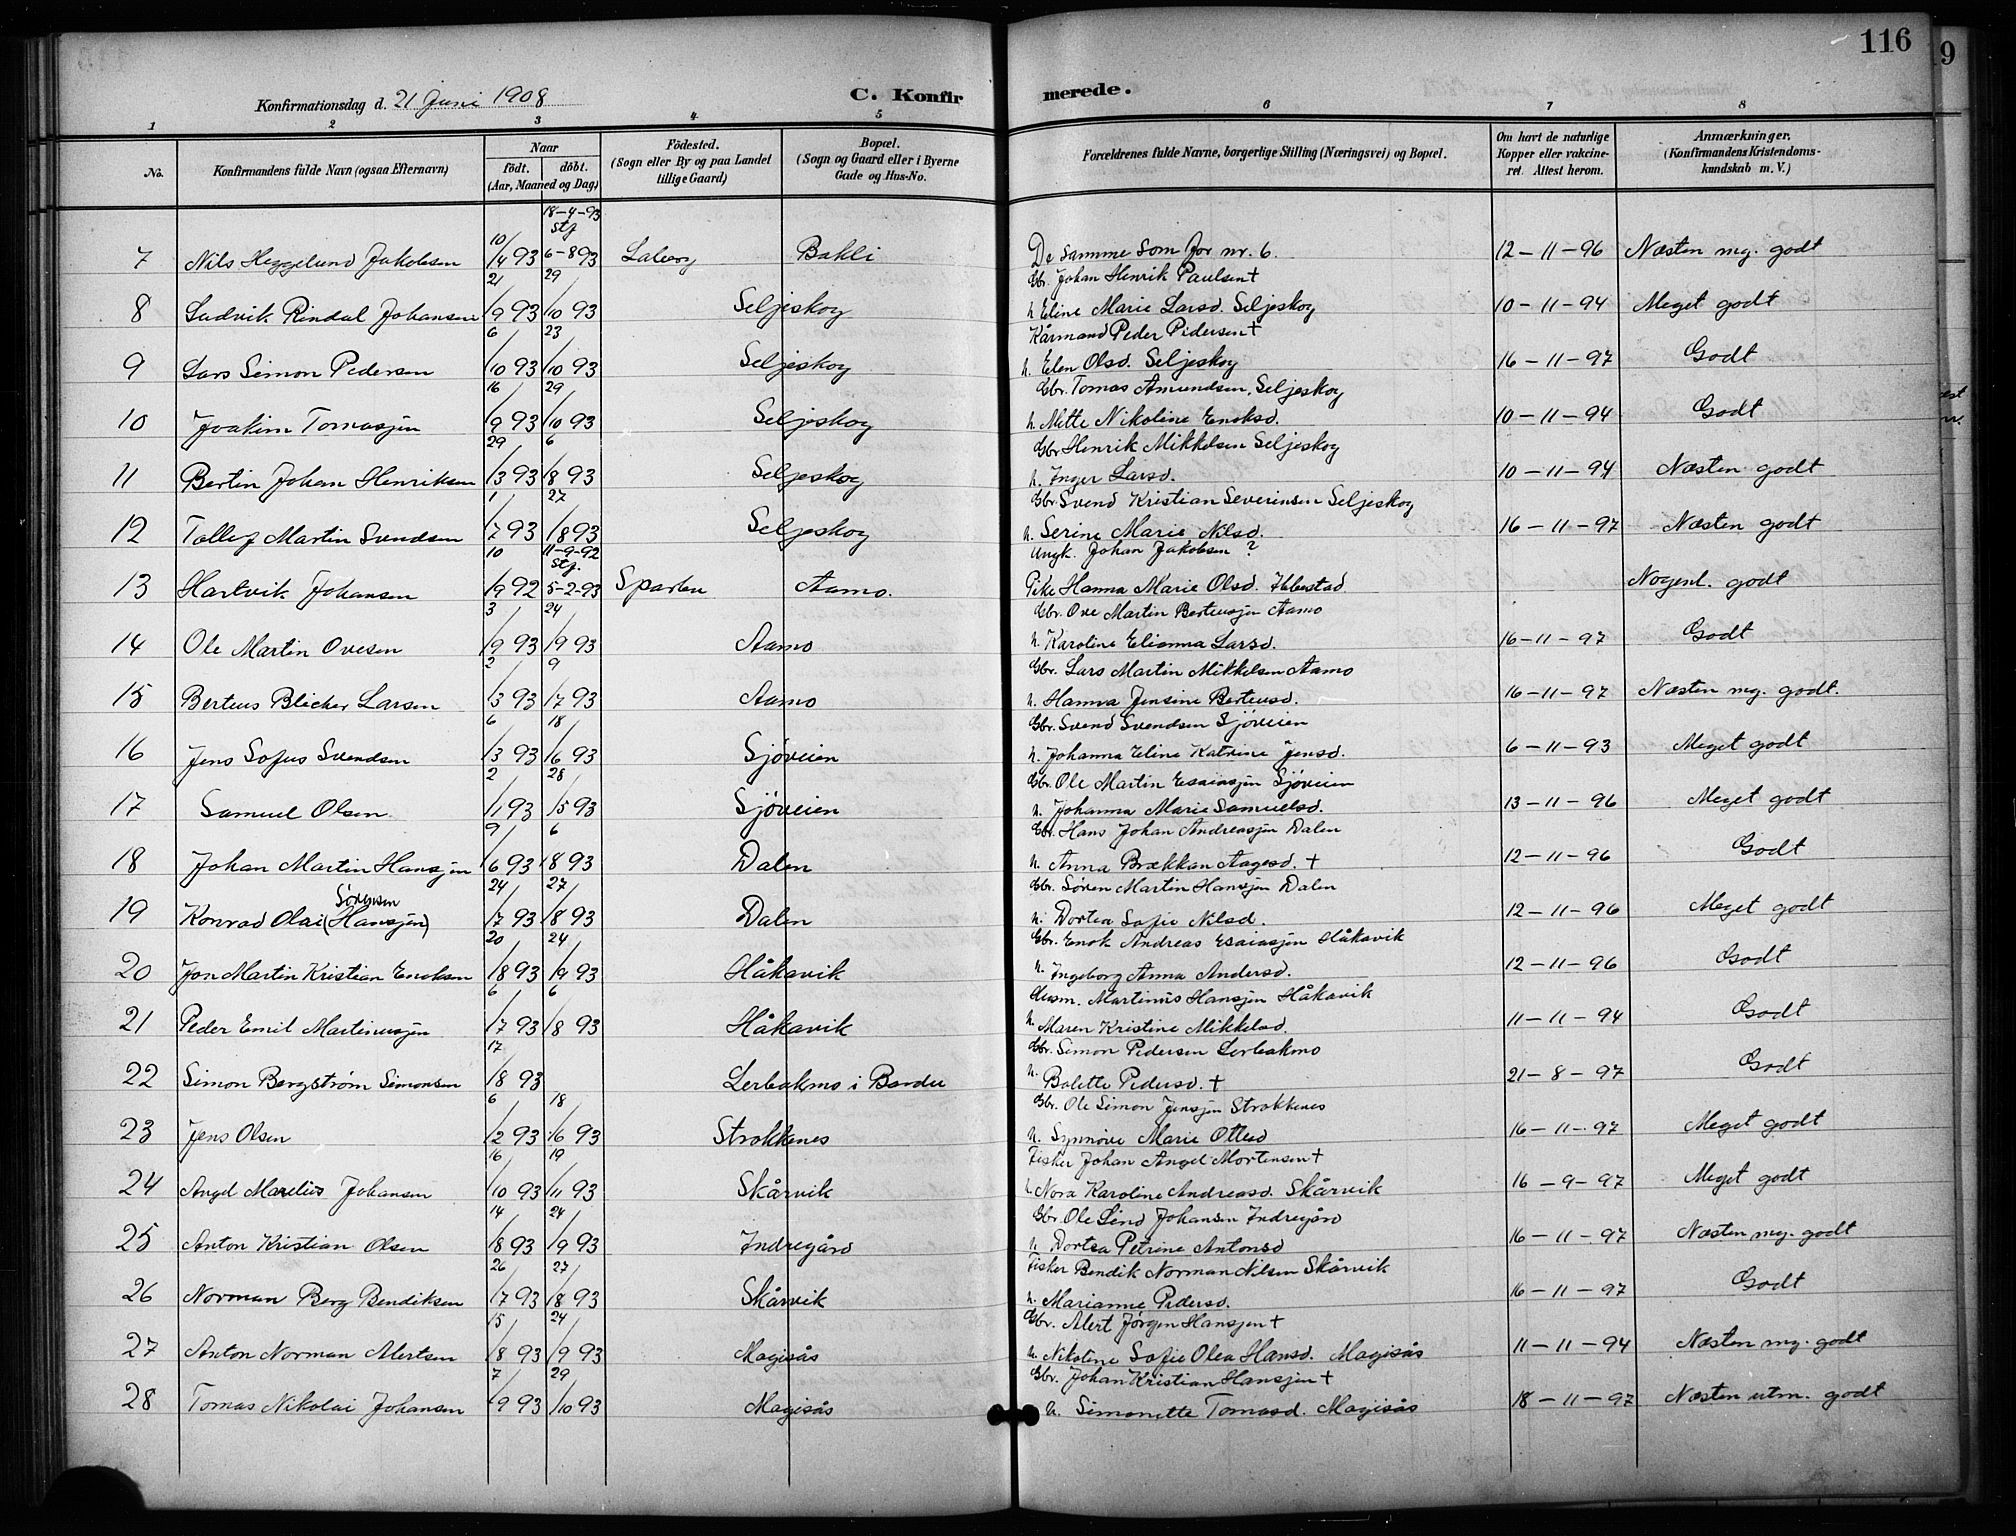 116
9
Konfirmationsdag d. 21 Juni 1908
C. Konfir
merede.
1 2 3 4 5 6 7 8
No.
Konfirmandens fulde Navn (ogsaa Efternavn)
Naar
født. døbt.
(Aar, Maaned og Dag)
Födested.
(Sogn eller By og paa Landet
tillige Gaard)
Bopæl.
(Sogn og Gaard eller i Byerne
Gade og Hus-No.
Forældrenes fulde Navne, borgerlige Stilling (Næringsvei) og Bopæl.
Om havt de naturlige
Kopper eller vakcine-
ret. Attest herom.
Anmærkninger.
(Konfirmandens Kristendoms-
kundskab m. V.)
18-4-93
stf.
7 Nils Heggelund Jakobsen 10/4 93 6-8 93 Laberg Bakli De samme som for nr. 6. 12-11-96 Næsten mg. godt
Gbr. Johan Henrik Paulsen †
8 Ludvik Rindal Johansen 21/9 93 29/10 93 Seljeskog h. Eline Marie Larsd. Seljeskog 10-11-94 Meget godt
Kårmand Peder Pedersen †
9 Lars Simon Pedersen 6/10 93 23/10 93 Seljeskog h. Elen Olsd. Seljeskog 16-11-97 Godt
Gbr. Tomas Amundsen, Seljeskog
10 Joakim Tomassen 16/9 93 29/10 93 Seljeskog h. Mette Nikoline Enoksd. 10-11-94 Godt
Gbr. Henrik Mikkelsen Seljeskog
11 Bertin Johan Henriksen 29/3 93 6/8 93 Seljeskog h. Inger Larsd. 10-11-94 Næsten godt
Gbr. Svend Kristian Severinsen Seljeskog
12 Tollef Martin Svendsen 1/7 93 27/8 93 Seljeskog h. Serine Marie Nilsd. 16-11-97 Næsten godt
11-9-92
stf.
Ungk. Johan Jakobsen ?
13 Hartvik Johansen 10/9 92 5-2-93 Sparbu Aamo. Pike Hanna Marie Olsd. Ibbestad Nogenl. godt
Gbr. Ove Martin Berteussen Aamo
14 Ole Martin Ovesen 3/9 93 24/9 93 Aamo h. Karoline Elianna Larsd. 16-11-97 Godt
Gbr. Lars Martin Mikkelsen Aamo
15 Berteus Blicher Larsen 2/3 93 9/7 93 Aamo h. Hanna Jensine Berteusd. 16-11-97 Næsten mg. godt.
Gbr. Svend Svendsen Sjøveien
16 Jens Sofus Svendsen 6/3 93 18/6 93 Sjøveien h. Johanna Eline Katrine Jensd. 6-11-93 Meget godt
Gbr. Ole Martin Esaiassen Sjøveien
17 Samuel Olsen 2/1 93 28/5 93 Sjøveien h. Johanna Marie Samuelsd. 13-11-96 Meget godt
Gbr. Hans Johan Andreassen Dalen
18 Johan Martin Hanssen 9/6 93 6/8 93 Dalen h. Anna Brækkan Aagesd. † 12-11-96 Godt
Gbr. Søren Martin Hanssen Dalen
Sørensen
19 Konrad Olai (Hanssen) 24/7 93 27/8 93 Dalen h. Dortea Sofie Nilsd. 12-11-96 Meget godt
Gbr. Enok Andreas Esaiassen Håkavik
20 Jon Martin Kristian Enoksen 20/8 93 24/9 93 Håkavik h. Ingeborg Anna Andersd. 12-11-96 Godt
Husm. Martinus Hanssen Håkavik
21 Peder Emil Martinussen 6/7 93 6/8 93 Håkavik h. Maren Kristine Mikkelsd. 11-11-94 Godt
Gbr. Simon Pedersen Lerbakmo
22 Simon Bergstrøm Simonsen 17/8 93 Lerbakmo i Bardu h. Bolette Pedersd. † 21-8-97 Godt
Gbr. Ole Simon Jenssen Strokkenes
23 Jens Olsen 6/2 93 18/6 93 Strokkenes h. Synnøve Marie Ottesd 16-11-97 Meget godt
Fisker Johan Angel Mortensen †
24 Angel Marelius Johansen 16/10 93 19/11 93 Skårvik h. Nora Karoline Andreasd. Skårvik 16-9-97 Meget godt
Gbr. Ole Lind Johansen Indregård
25 Anton Kristian Olsen 14/8 93 24/9 93 Indregård h. Dortea Petrine Antonsd 16-11-97 Næsten mg. godt
Fisker Bendik Norman Nilsen Skårvik
26 Norman Berg Bendiksen 26/7 93 27/8 93 Skårvik h. Marianne Pedersd. 16-11-97 Godt
Gbr. Alert Jørgen Hanssen †
27 Anton Norman Alertsen 15/8 93 24/9 93 Magisås h. Nikoline Sofie Olea Hansd. Magisås 11-11-94 Næsten mg. godt
Gbr. Johan Kristian Hanssen †
28 Tomas Nikolai Johansen 7/9 93 29/10 93 Magisås h. Simonette Tomasd. Magisås 18-11-97 Næsten utm. godt